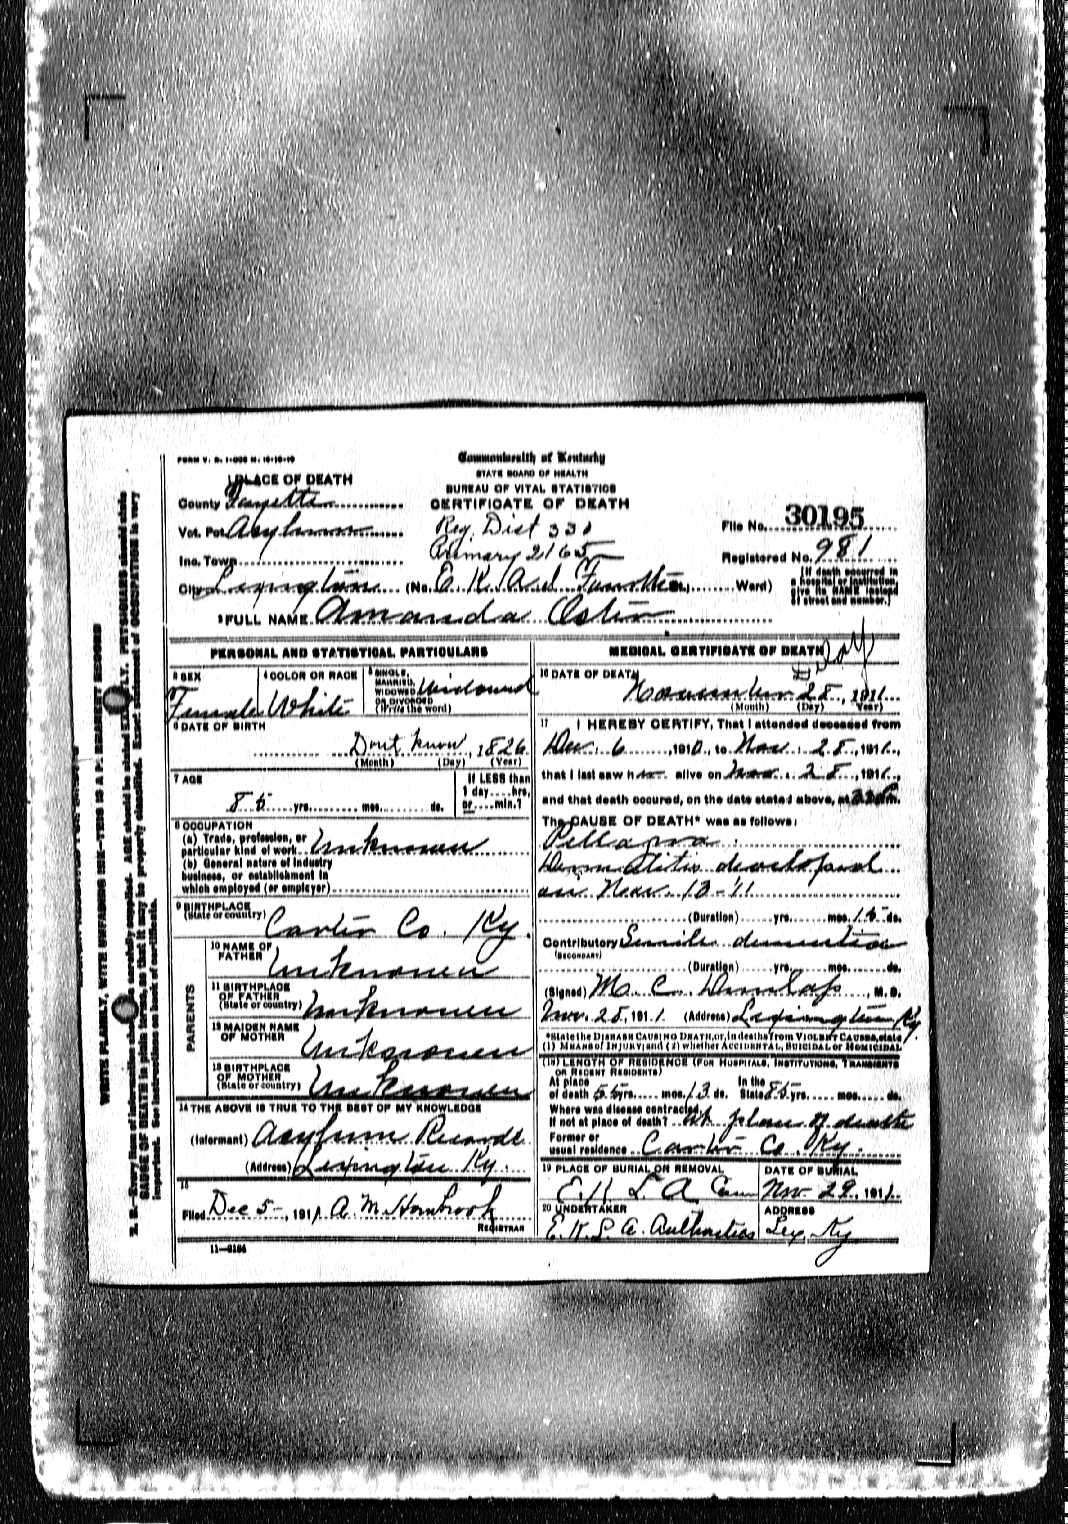 FORM V. S. 1-
Commonwealth of Kentucky
STATE BOARD OF HEALTH
BUREAU OF VITAL STATISTICS
CERTIFICATE OF DEATH
1 PLACE OF DEATH
County Fayette
Vot. Pct Asylum
Inc. Town
City Lexington (No. E. K. A. I. St.; Ward)
Reg. Dist 331
Primary 2165
File No. 30195
Registered No. 981
[If death occurred in
a hospital or institution,
give its NAME instead
of street and number.]
2 FULL NAME Amanda Ostin
PERSONAL AND STATISTICAL PARTICULARS
3 SEX
Female
4 COLOR OR RACE
White
5 SINGLE,
MARRIED,
WIDOWED
OR DIVORCED
(Write the word)
Widowed
6 DATE OF BIRTH
Dont know, 1826
(Month) (Day) (Year)
7 AGE
85 yrs. mos. ds.
If LESS than
1 day hrs.
or min.?
8 OCCUPATION
(a) Trade, profession, or
particular kind of work Unknown
(b) General nature of industry
business, or establishment in
which employed (or employer)
9 BIRTHPLACE
(State or country) Carter Co. Ky.
PARENTS
10 NAME OF
FATHER Unknown
11 BIRTHPLACE
OF FATHER
(State or country) Unknown
12 MAIDEN NAME
OF MOTHER Unknown
13 BIRTHPLACE
OF MOTHER
(State or country) Unknown
14 THE ABOVE IS TRUE TO THE BEST OF MY KNOWLEDGE
(Informant) Asylum Records
(Address) Lexington Ky.
15
Filed Dec 5-, 1911 A. M. Hornbrook
REGISTRAR
11-3184
MEDICAL CERTIFICATE OF DEATH
16 DATE OF DEATH
November 28, 1911
(Month) (Day) (Year)
17 I HEREBY CERTIFY, That I attended deceased from
Dec. 6, 1910, to Nov. 28, 1911,
that I last saw her alive on Nov. 28, 1911,
and that death occured, on the date stated above, at m.
The CAUSE OF DEATH* was as follows:
Pellagra.
Dermatitis developed
on Nov 13-11
(Duration) yrs. mos. 15 ds.
Contributory Senile dementia
(SECONDARY)
(Duration) yrs. mos. ds.
(Signed) M. C. Dunlap, M. D.
Nov. 28, 1911 (Address) Lexington Ky.
*State the DISEASE CAUSING DEATH, or, in deaths from VIOLENT CAUSES, state
(1) MEANS OF INJURY; and (2) whether ACCIDENTAL, SUICIDAL or HOMICIDAL
(18) LENGTH OF RESIDENCE (FOR HOSPITALS, INSTITUTIONS, TRANSIENTS
OR RECENT RESIDENTS)
At place
of death 55 yrs. mos. 13 ds.
In the
State 85 yrs. mos. ds.
Where was disease contracted,
If not at place of death? At place of death
Former or
usual residence Carter Co. Ky.
19 PLACE OF BURIAL OR REMOVAL
E. K. L. A. Cem
DATE OF BURIAL
Nov. 29, 1911
20 UNDERTAKER
E. K. L. A. Authorities
ADDRESS
Lex Ky
WRITE PLAINLY, WITH UNFADING INK—THIS IS A PERMANENT RECORD
N. B.—Every item of information should be carefully supplied. AGE should be stated EXACTLY. PHYSICIANS should state
CAUSE OF DEATH in plain terms, so that it may be properly classified. Exact statement of OCCUPATION is very
important. See instructions on back of certificate.